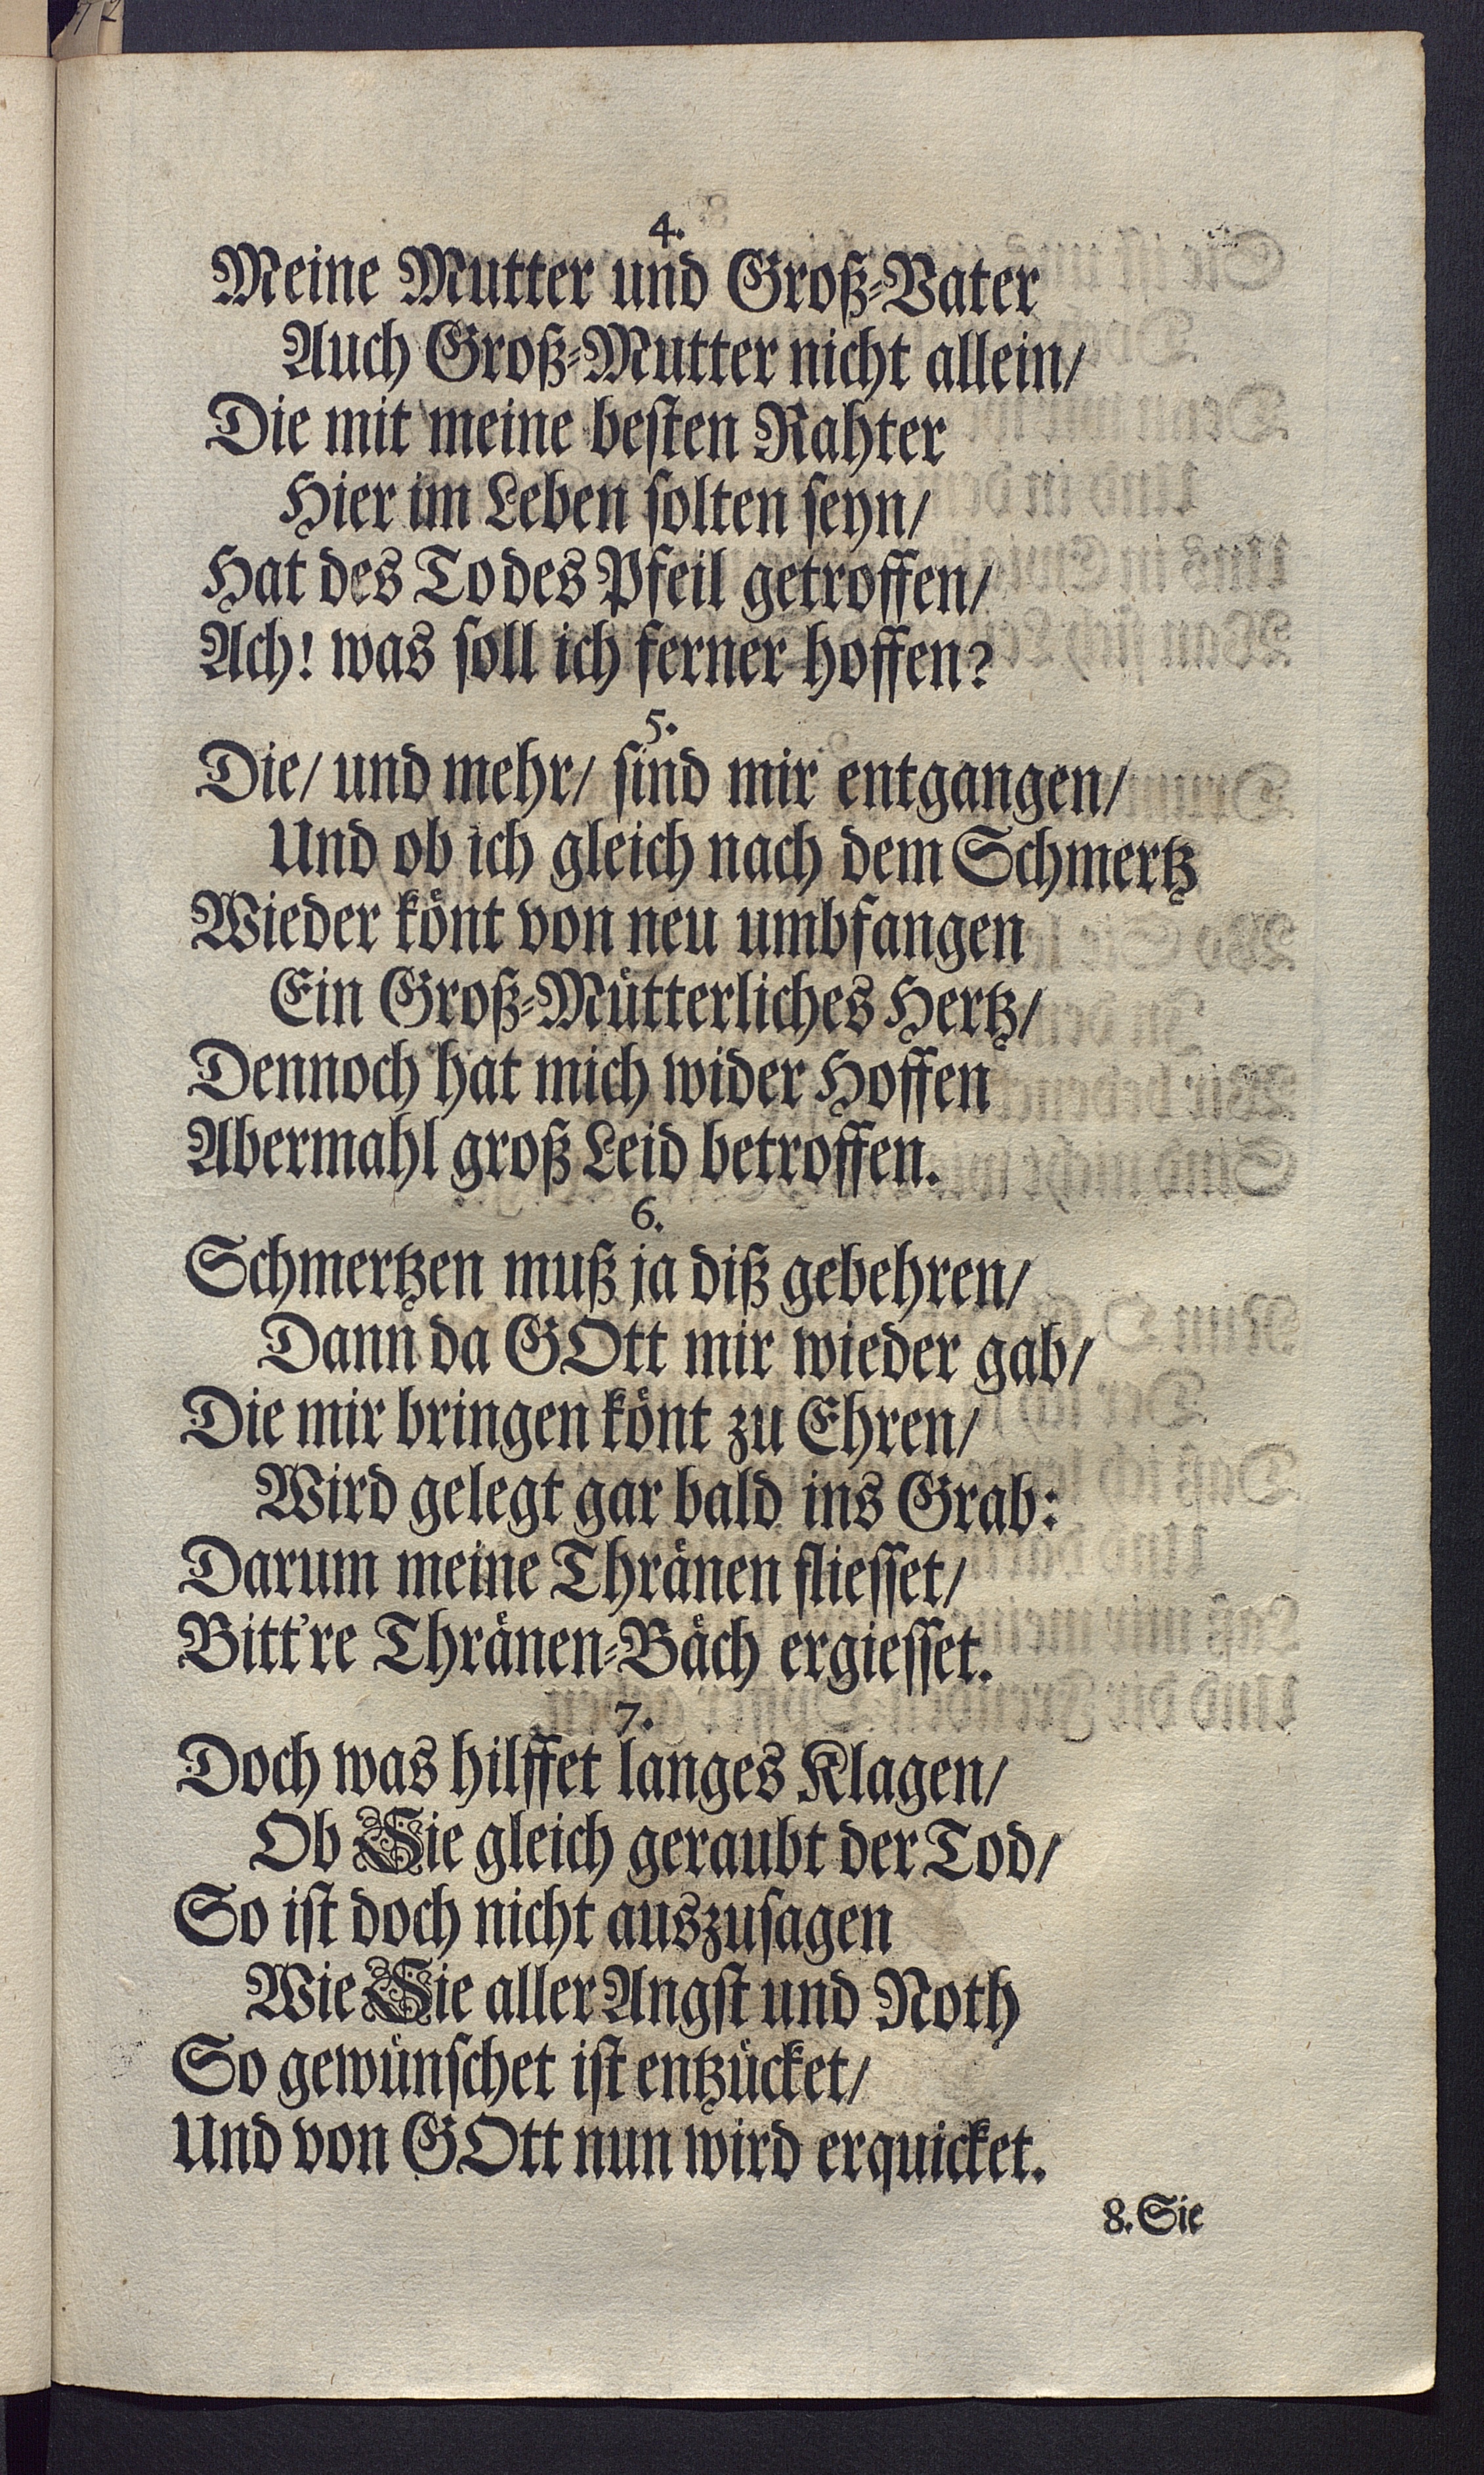 4.
Meine Mutter und Groß-Vater
Auch Groß-Mutter nicht allein/
Die mit meine besten Rahter
Hier im Leben solten seyn/
Hat des Todes Pfeil getroffen/
Ach! was soll ich ferner hoffen?
5.
Die/ und mehr/ sind mir entgangen/
Und ob ich gleich nach dem Schmertz
Wieder könt von neu umbfangen
Ein Groß-Mütterliches Hertz/
Dennoch hat mich wider Hoffen
Abermahl groß Leid betroffen.
6.
Schmertzen muß ja diß gebehren/
Dann da GOtt mir wieder gab/
Die mir bringen könt zu Ehren/
Wird gelegt gar bald ins Grab:
Darum meine Thränen fliesset/
Bitt're Thränen-Bäch ergiesset.
7.
Doch was hilffet langes Klagen/
Ob Sie gleich geraubt der Tod/
So ist doch nicht auszusagen
Wie Sie aller Angst und Noth
So gewünschet ist entzücket/
Und von GOtt nun wird erquicket.
8. Sie